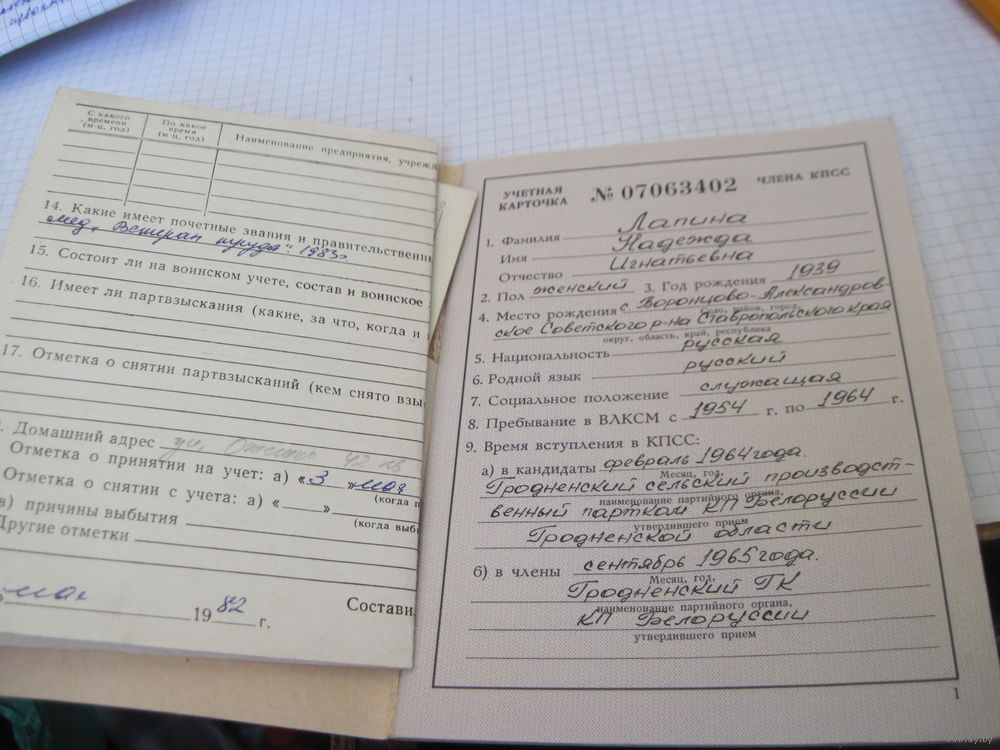 С какого
времени
(м-ц, год)
По какое
время
(м-ц, год)
Наименование предприятия, учрежд
14. Какие имеет почетные звания и правительственн
мед. "Ветеран труда". 1983г
15. Состоит ли на воинском учете, состав и воинское
16. Имеет ли партвзыскания (какие, за что, когда и
17. Отметка о снятии партвзысканий (кем снято взы
. Домашний адрес ул. 42 кв
Отметка о принятии на учет: а) «3 » мая
(когда п
Отметка о снятии с учета: а) « »
(когда выб
в) причины выбытия
Другие отметки
мая 1982 г.
Состави
УЧЕТНАЯ
КАРТОЧКА
№ 07063402
ЧЛЕНА КПСС
1. Фамилия Лапина
Имя Надежда
Отчество Игнатьевна
2. Пол женский 3. Год рождения 1939
4. Место рождения с. Воронцово-Александров-
село, район, город,
ское Советского р-на Ставропольского края
округ, область, край, республика
5. Национальность русская
6. Родной язык русский
7. Социальное положение служащая
8. Пребывание в ВЛКСМ с 1954 г. по 1964 г.
9. Время вступления в КПСС:
а) в кандидаты февраль 1964 года.
Месяц, год,
Гродненский сельский производст-
наименование партийного органа,
венный партком КП Белоруссии
утвердившего прием
Гродненской области
б) в члены сентябрь 1965 года.
Месяц, год,
Гродненский ГК
наименование партийного органа,
КП Белоруссии
утвердившего прием
1